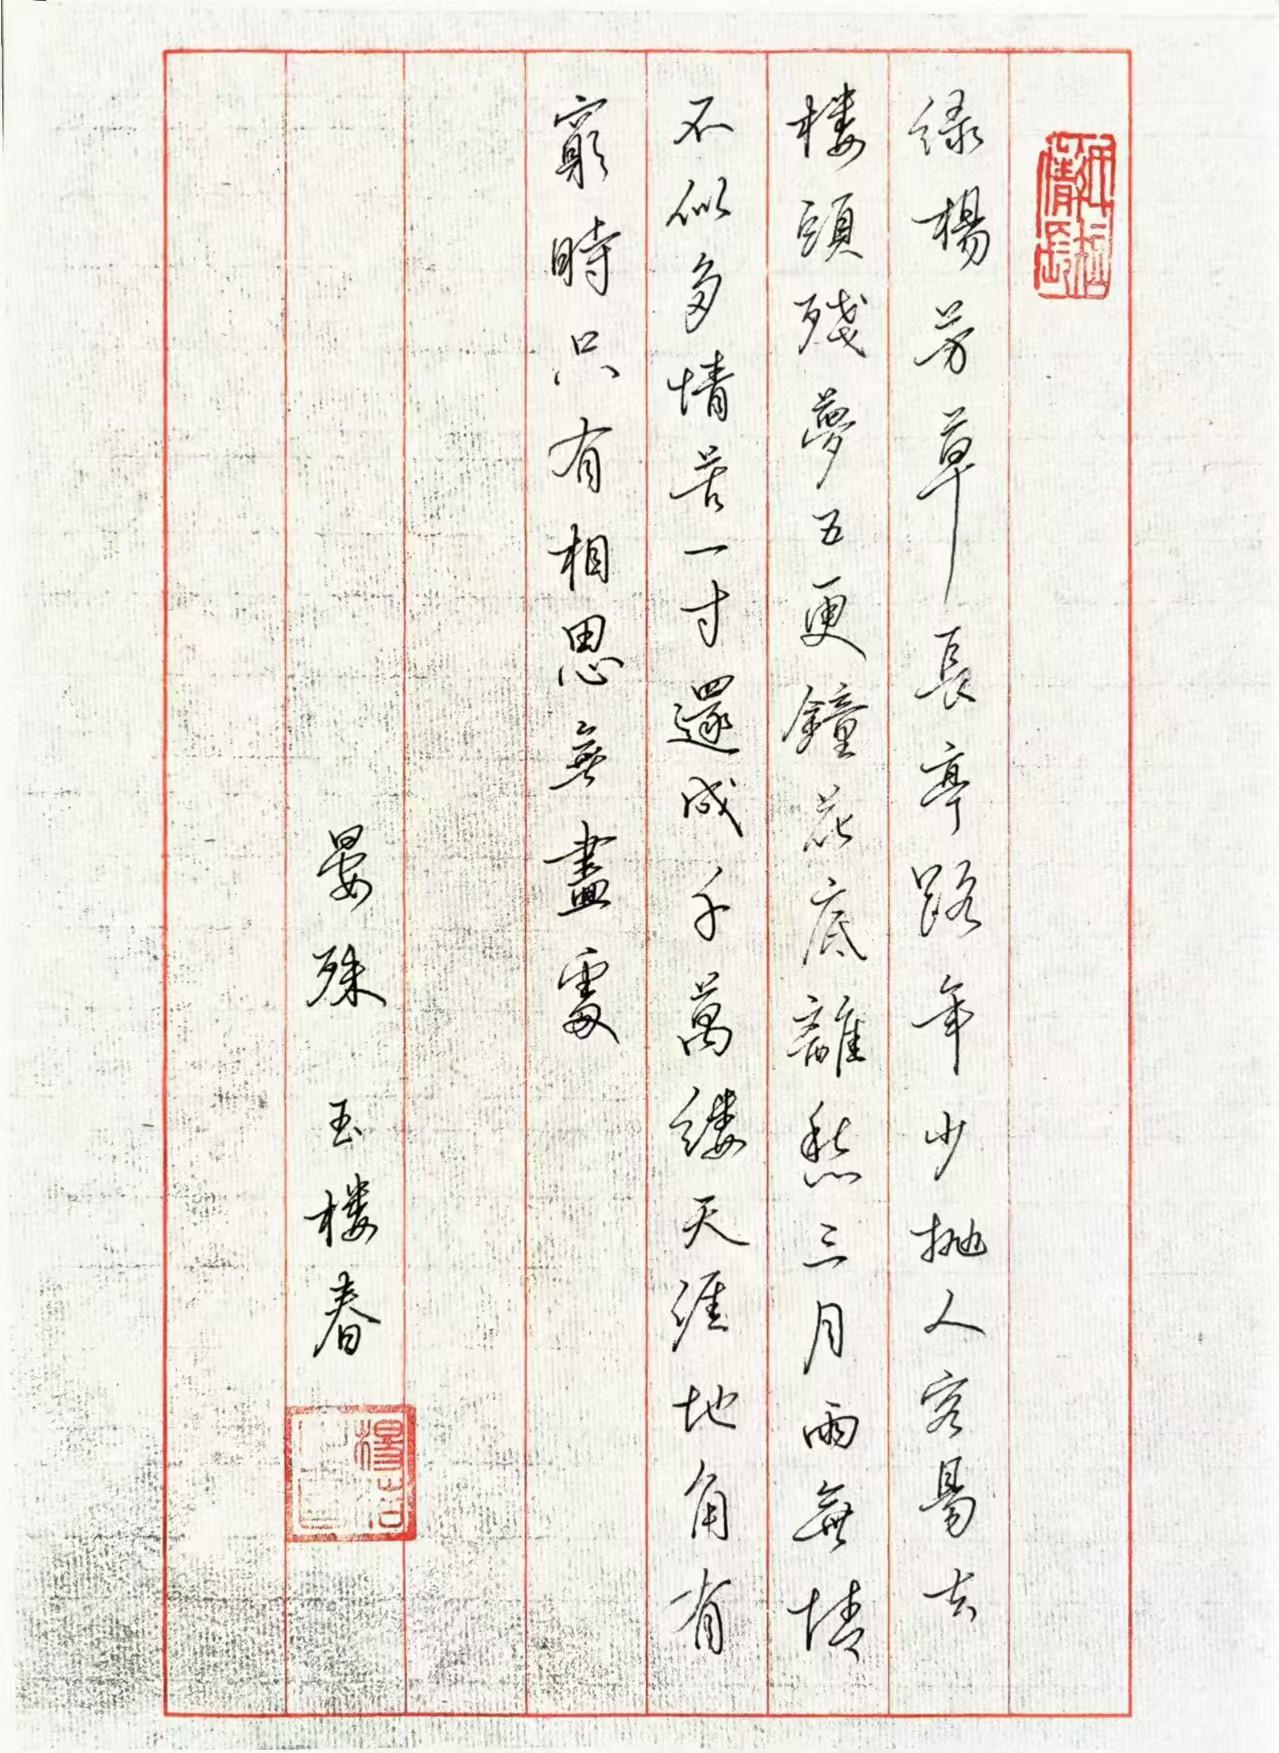 绿楊芳草長亭路年少抛人容易去
楼頭殘夢五更鐘花底離愁三月雨無情
不似多情苦一寸還成千萬縷天涯地角有
窮時只有相思無盡處
晏殊 玉楼春